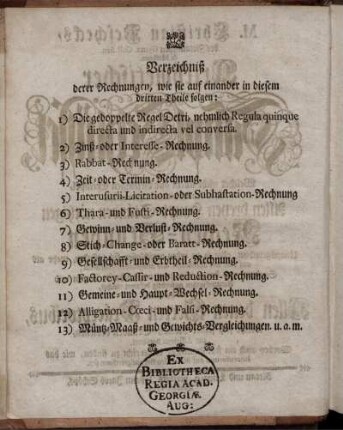 Verzeichniß
derer Rechnungen, wie sie auf einander in diesem
dritten Theile folgen:
1) Die gedoppelte Regel Detri, nehmlich Regula quinque
directa und indirecta vel conversa.
2) Zinß-oder Interesse-Rechnung.
3) Rabbat-Rechnung.
4) Zeit-oder Termin-Rechnung.
5) Interusurii-Licitation-oder Subhastation-Rechnung
6) Thara-und Fusti-Rechnung.
7) Gewinn-und Verlust-Rechnung.
8) Stich-Change-oder Baratt-Rechnung.
9) Gesellschafft-und Erbtheil-Rechnung.
10) Factorey-Cassir-und Reduction-Rechnung.
11) Gemeine-und Haupt-Wechsel-Rechnung.
12) Alligation-Cœci-und Falsi-Rechnung.
13) Müntz-Maaß-und Gewichts-Vergleichungen u. a. m.
EX
BIBLIOTHECA
REGIA ACAD.
GEORGIÆ
AUG: